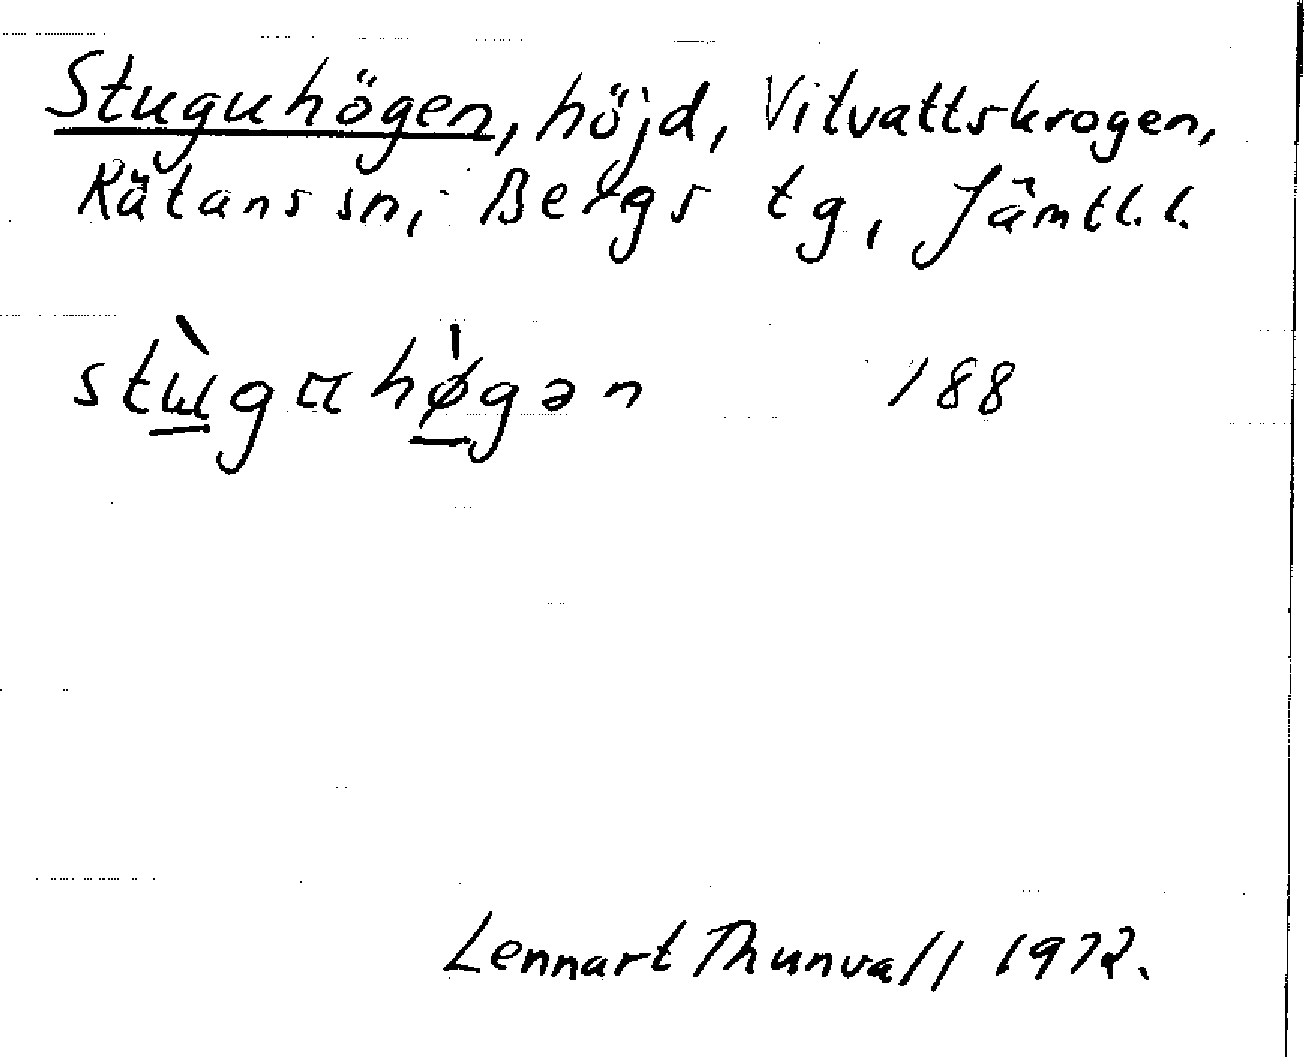 Stuguhögen, höjd, Vitvattskrogen,
Rätans sn, Bergs tg, Jämtl. l.
188
Lennart Thunvall 1972.